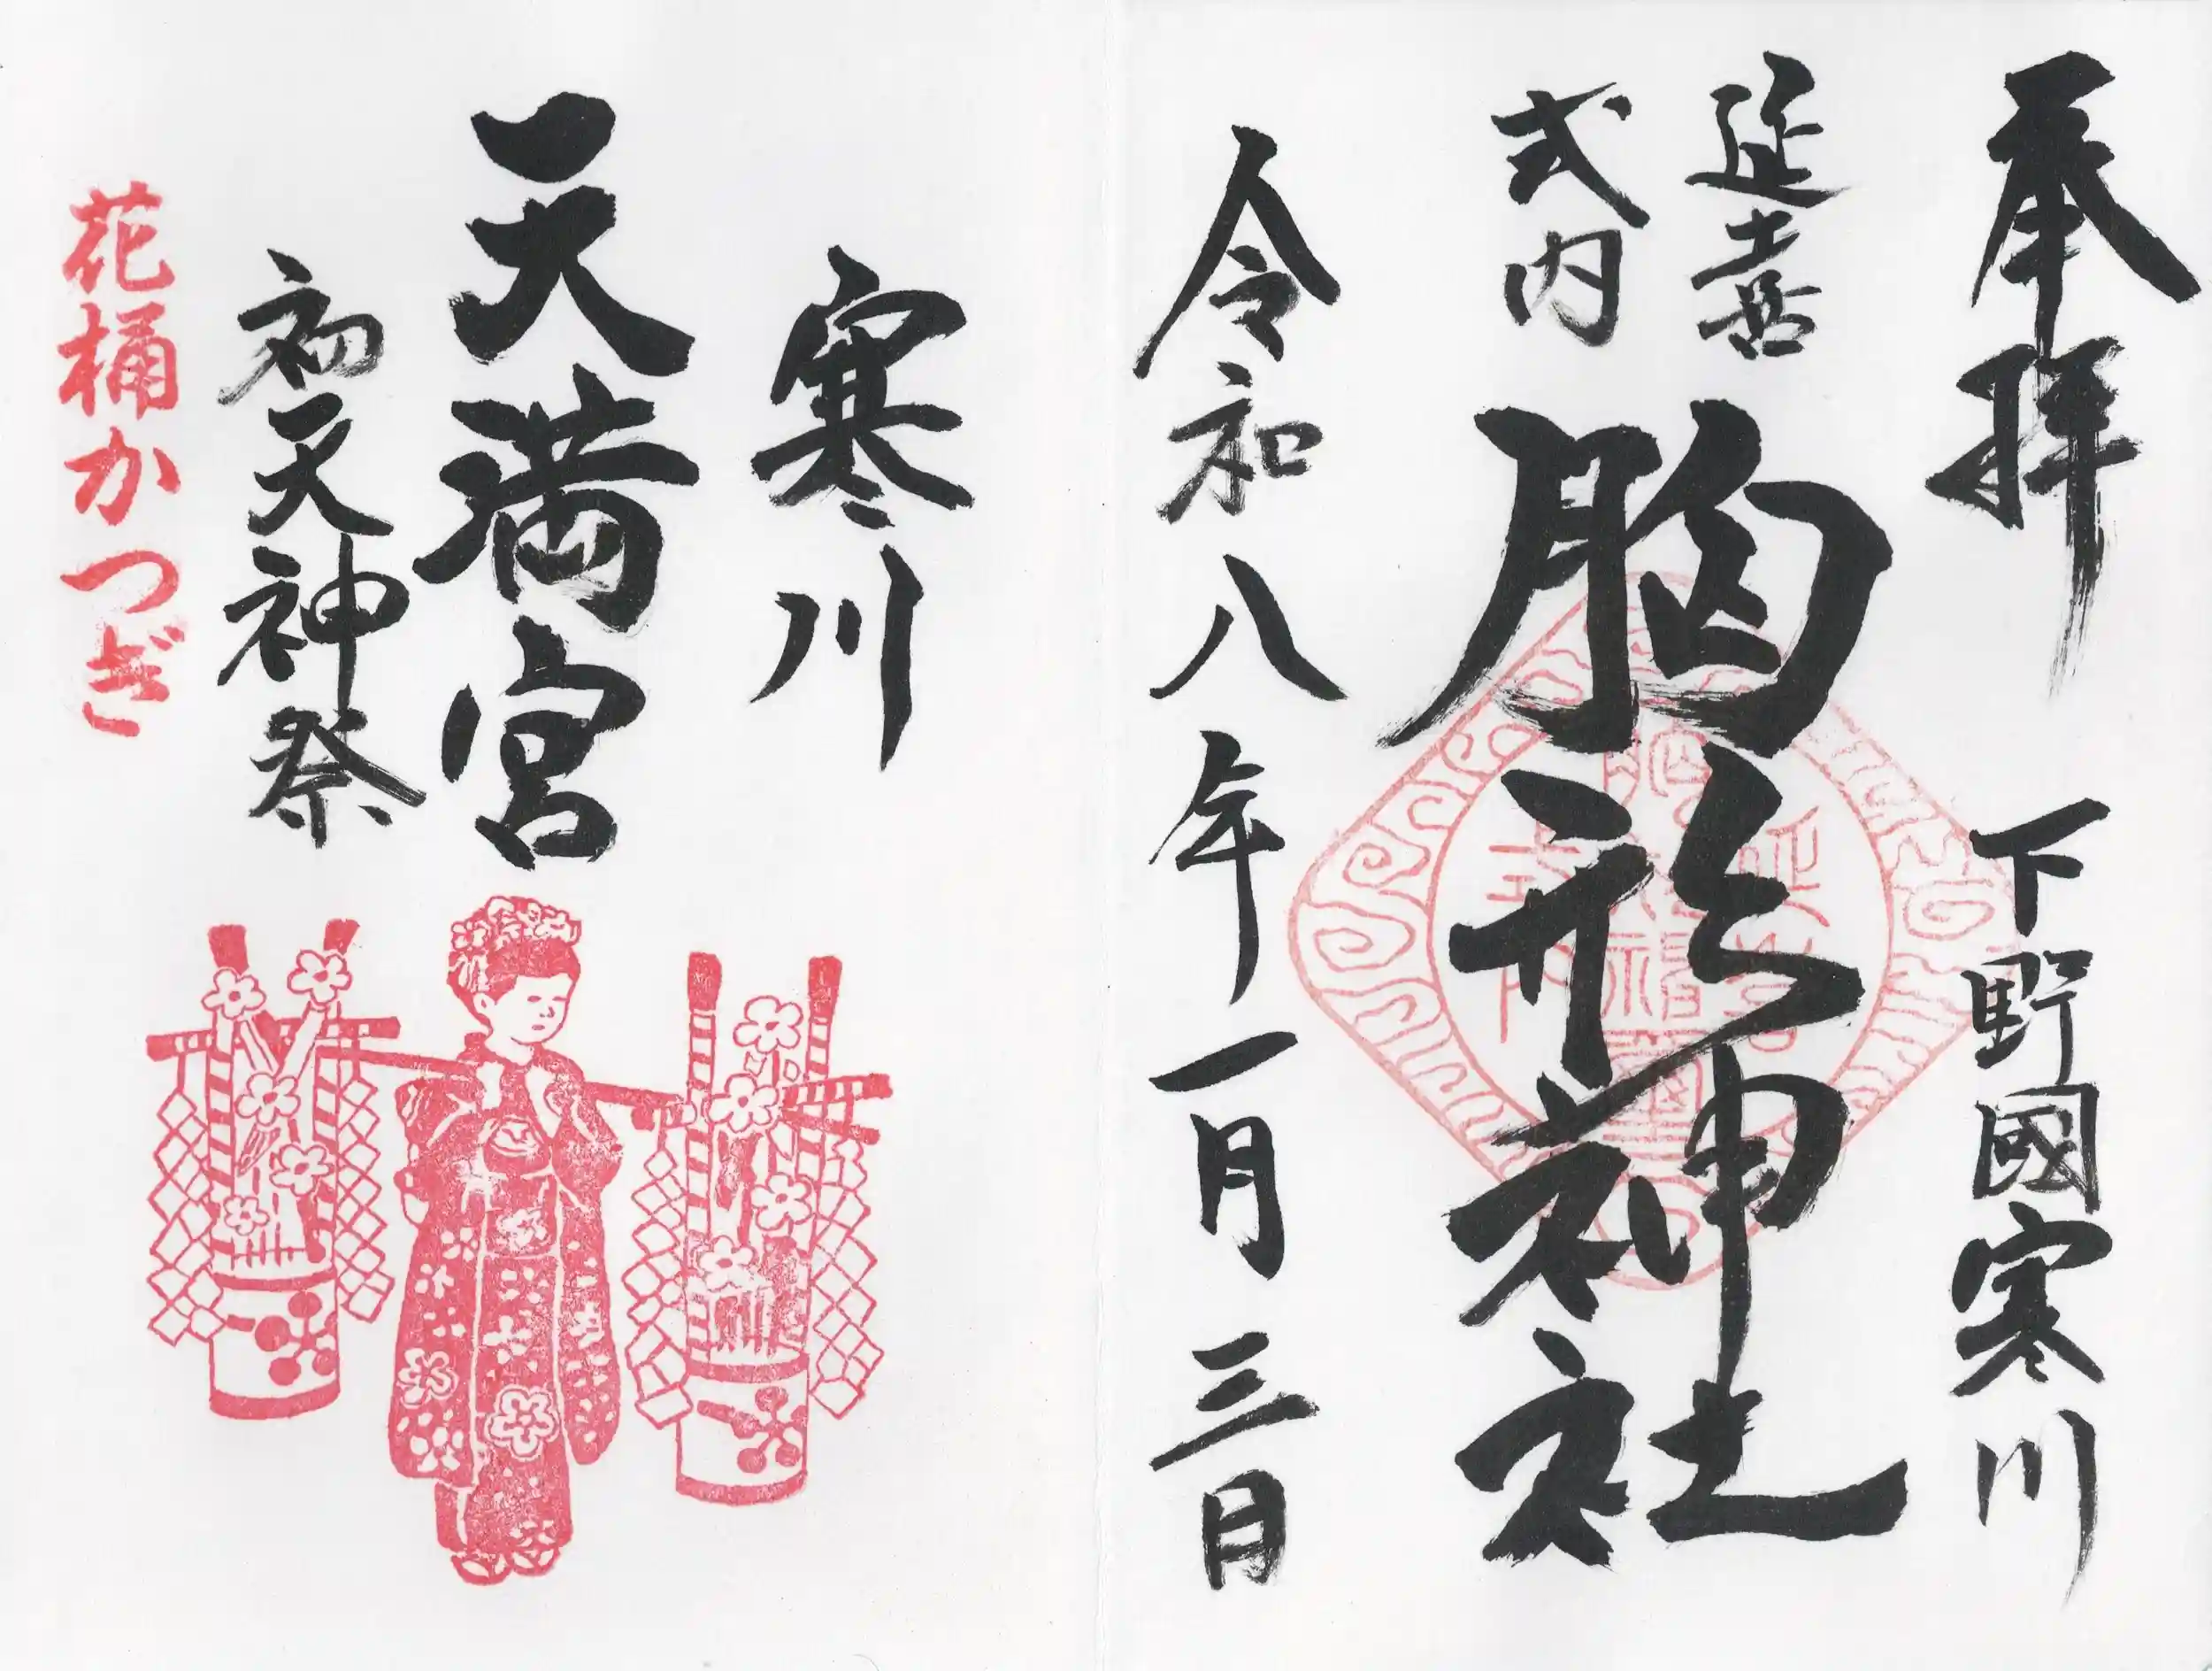 奉拝 下野國寒川
延喜
式内
胸形神社
令和八年一月三日
寒川
天満宮
初天神祭
花桶かつぎ